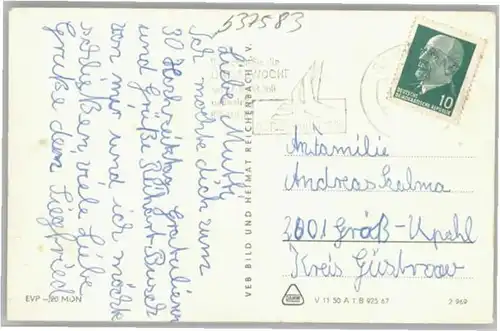 537583
Liebe Mutti
Ich möchte dich zum
30 Hochzeitstag Gratulieren
und Grüße
von mir und ich möchte
schließen, viele Liebe
Grüße dein Siegfried
VEB BILD UND HEIMAT REICHENBACH i. V.
DEUTSCHE
DEMOKRATISCHE REPUBLIK
10
An Familie
Andreas Kalma
2601 Groß-Upahl
Kreis Güstrow
EVP -,20 MDN
V 11 50 A 1 B 925 67
2 969